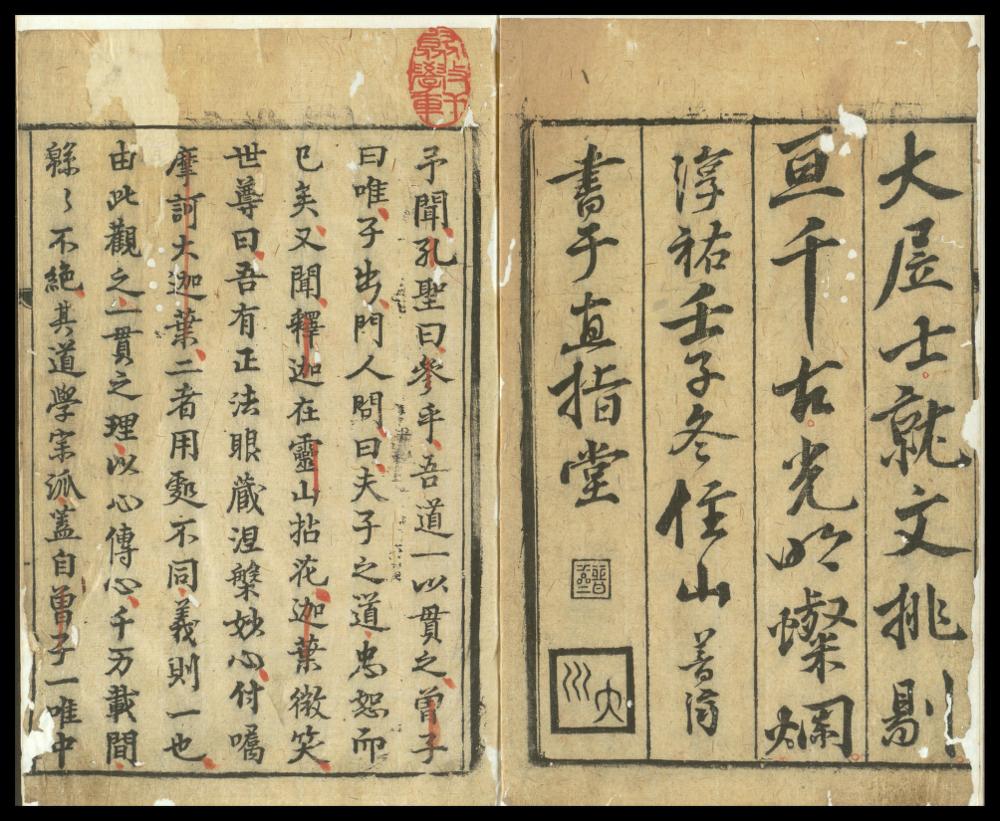 大居士就文挑剔
亘千古光明燦爛
淳祐壬子冬住山普濟
書于直指堂
普濟
大川
予聞孔聖曰參乎吾道一以貫之曾子
曰唯子出門人問曰夫子之道忠恕而
已矣又聞釋迦在靈山拈花迦葉微笑
世尊曰吾有正法眼藏涅槃妙心付囑
摩訶大迦葉二者用處不同義則一也
由此觀之一貫之理以心傳心千万載間
緜〻不絶其道學宗派盖自曾子一唯中